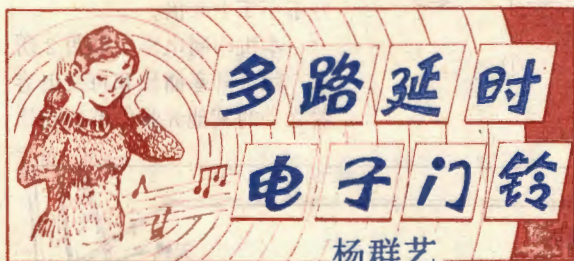 多路延时
电子门铃
杨群艺